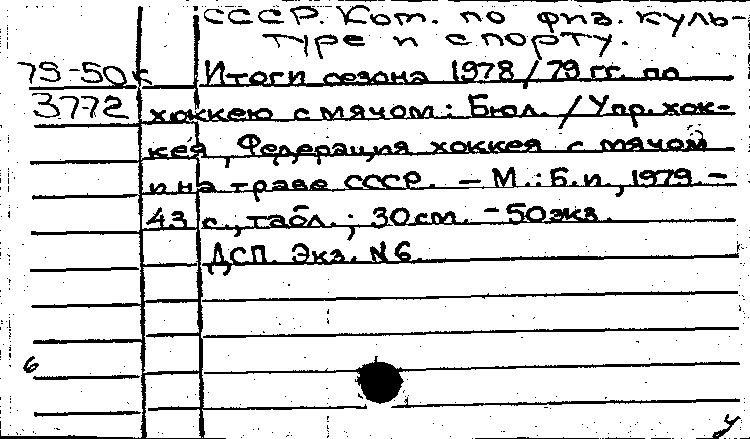 СССР. Ком. по физ. куль-
туре и спорту.
79-50к Итоги сезона 1978/79 гг. по
3772 хоккею с мячом: Бюл. / Упр. хок-
кея, Федерация хоккея с мячом
и на траве СССР. – М.: Б.и., 1979. –
43 с., табл.; 30 см. – 50 экз.
ДСП. Экз. №6.
6
у